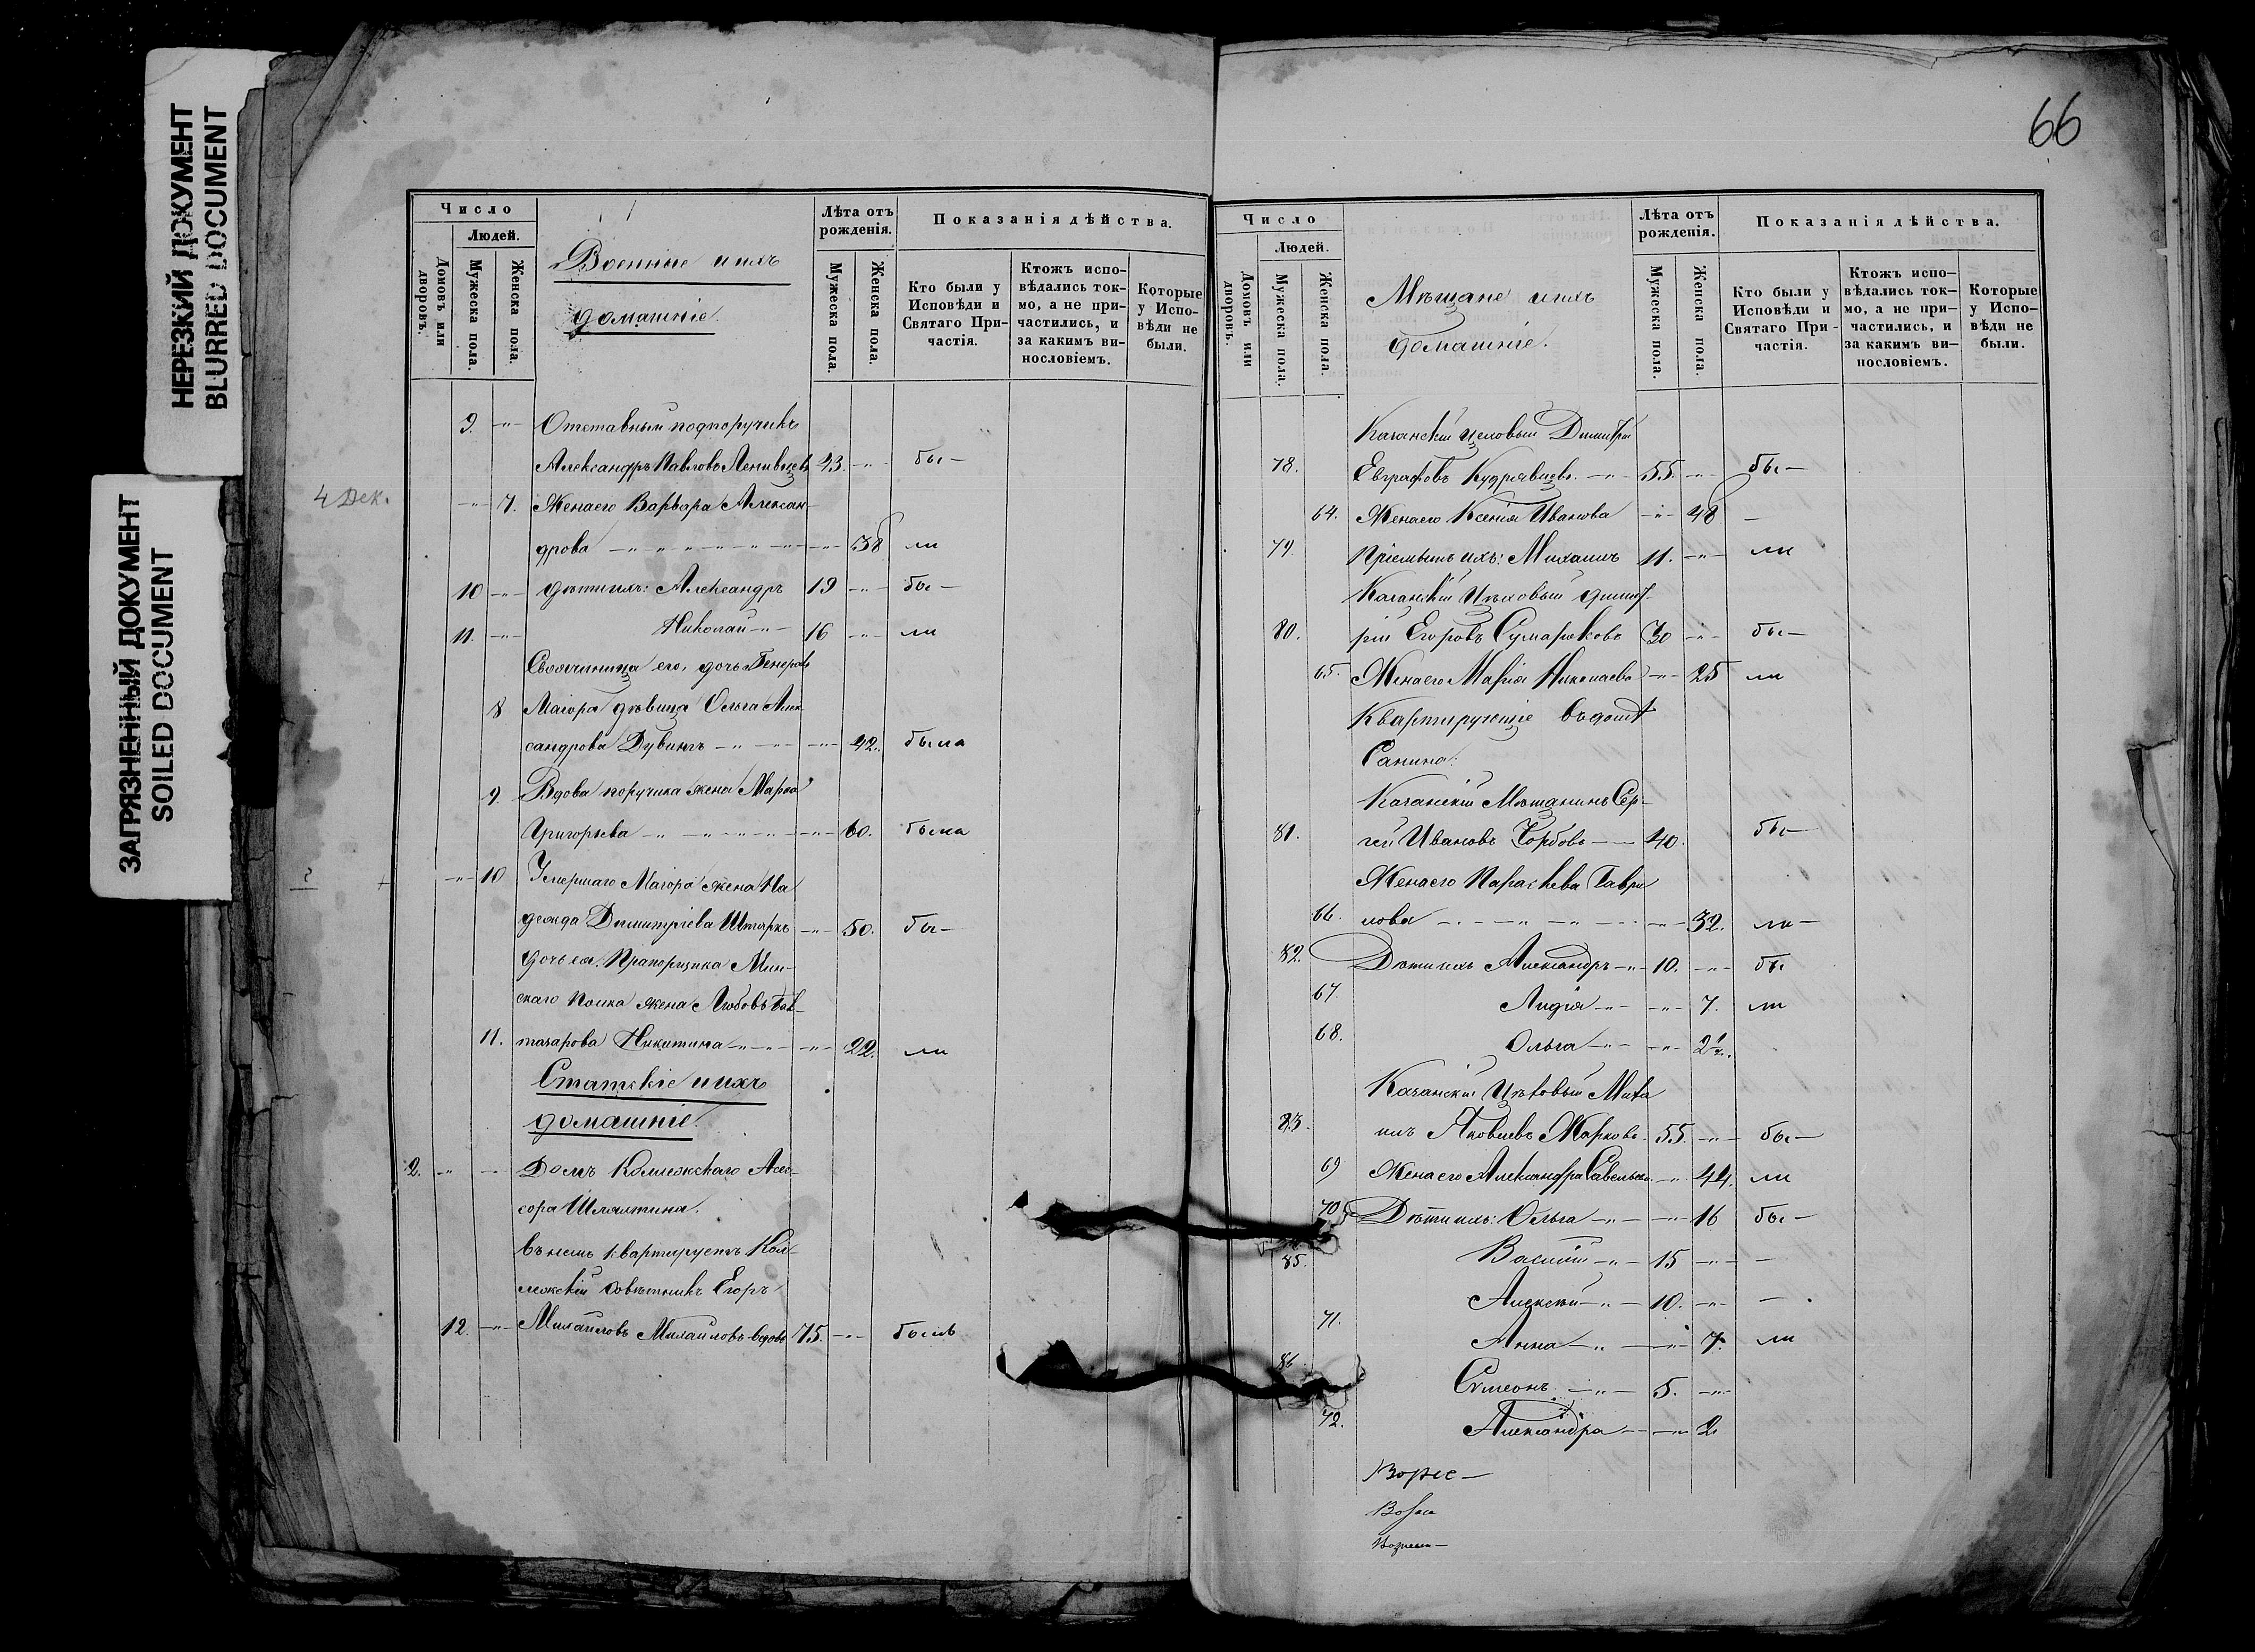 НЕРЕЗКИЙ ДОКУМЕНТ
BLURRED DOCUMENT
ЗАГРЯЗНЕННЫЙ ДОКУМЕНТ
SOILED DOCUMENT
4 Дек.
Число
Людей.
Домовъ или дворовъ.
Мужеска пола.
Женска пола.
Военные и ихъ
домашніе.
Лѣта отъ рожденія.
Мужеска пола.
Женска пола.
Показанія дѣйства.
Кто были у Исповѣди и Святаго Причастія.
Ктожъ исповѣдались токмо, а не причастились, и за какимъ винословіемъ.
Которые у Исповѣди не были.
9. -"- Отставный подпоручикъ
Александръ Павловъ 43. -"- бы-
-"- 7. Жена его Варвара Алексан-
дрова -"- 38 ли
10 -"- Дѣти ихъ: Александръ 19 -"- бы-
11. -"- Николай -"- 16 -"- ли
Своячиница его, дочь Генералъ
8 Маіора дѣвица Ольга Алек-
сандрова -"- 42. была
9 Вдова поручика жена Марѳа
Григорьева -"- 60. была
-"- 10 Умершаго Маіора жена На
дежда Димитріева -"- 50. бы-
Дочь ея, Прапорщика Мин-
скаго полка жена Любовь
11. Никитина -"- 22. ли
Статскіе и ихъ
домашніе.
2. -"- Домъ Коллежскаго Асес-
сора
Въ немъ квартируетъ Кол-
лежскій Совѣтникъ Егоръ
12 -"- Михайловъ Михайловъ вдовъ 75. -"- былъ
66
Число
Людей.
Домовъ или дворовъ.
Мужеска пола.
Женска пола.
Мѣщане и ихъ
домашніе.
Лѣта отъ рожденія.
Мужеска пола.
Женска пола.
Показанія дѣйства.
Кто были у Исповѣди и Святаго Причастія.
Ктожъ исповѣдались токмо, а не причастились, и за какимъ винословіемъ.
Которые у Исповѣди не были.
Казанскій цеховый Димитрій
78. Евграфовъ Кудрявцевъ. -"- 55. -"- бы-
64. Жена его Ксенія Иванова -"- 48 -
79. Пріемышъ ихъ: Михаилъ 11. -"- ли
Казанскій Цѣховый Димит-
80. рій Егоровъ Сумароковъ 30 -"- бы-
65. Жена его Марія Николаева -"- 25 ли
Квартирующіе въ домѣ
Санина:
Казанскій Мѣщанинъ Сер-
81. гей Ивановъ 40. бы-
Жена его Параскева Гаври
66. лова -"- 32. ли-
82. Дѣти ихъ Александръ -"- 10. -"- бы
67. Лидія -"- 7. ли
68. Ольга -"- 2 1/2.
Казанскій Цѣховый Миха
83. илъ Яковлевъ Жарковъ. 55. -"- бы-
69 Жена его Александра Савельева -"- 44. ли
70 Дѣти ихъ: Ольга -"- 16 бы-
85. Василій -"- 15 -"- -
Алексѣй -"- 10. -"- -
71. Анна -"- 7. ли
86. Сѵмеонъ -"- 5. -"-
72. Александра -"- 2